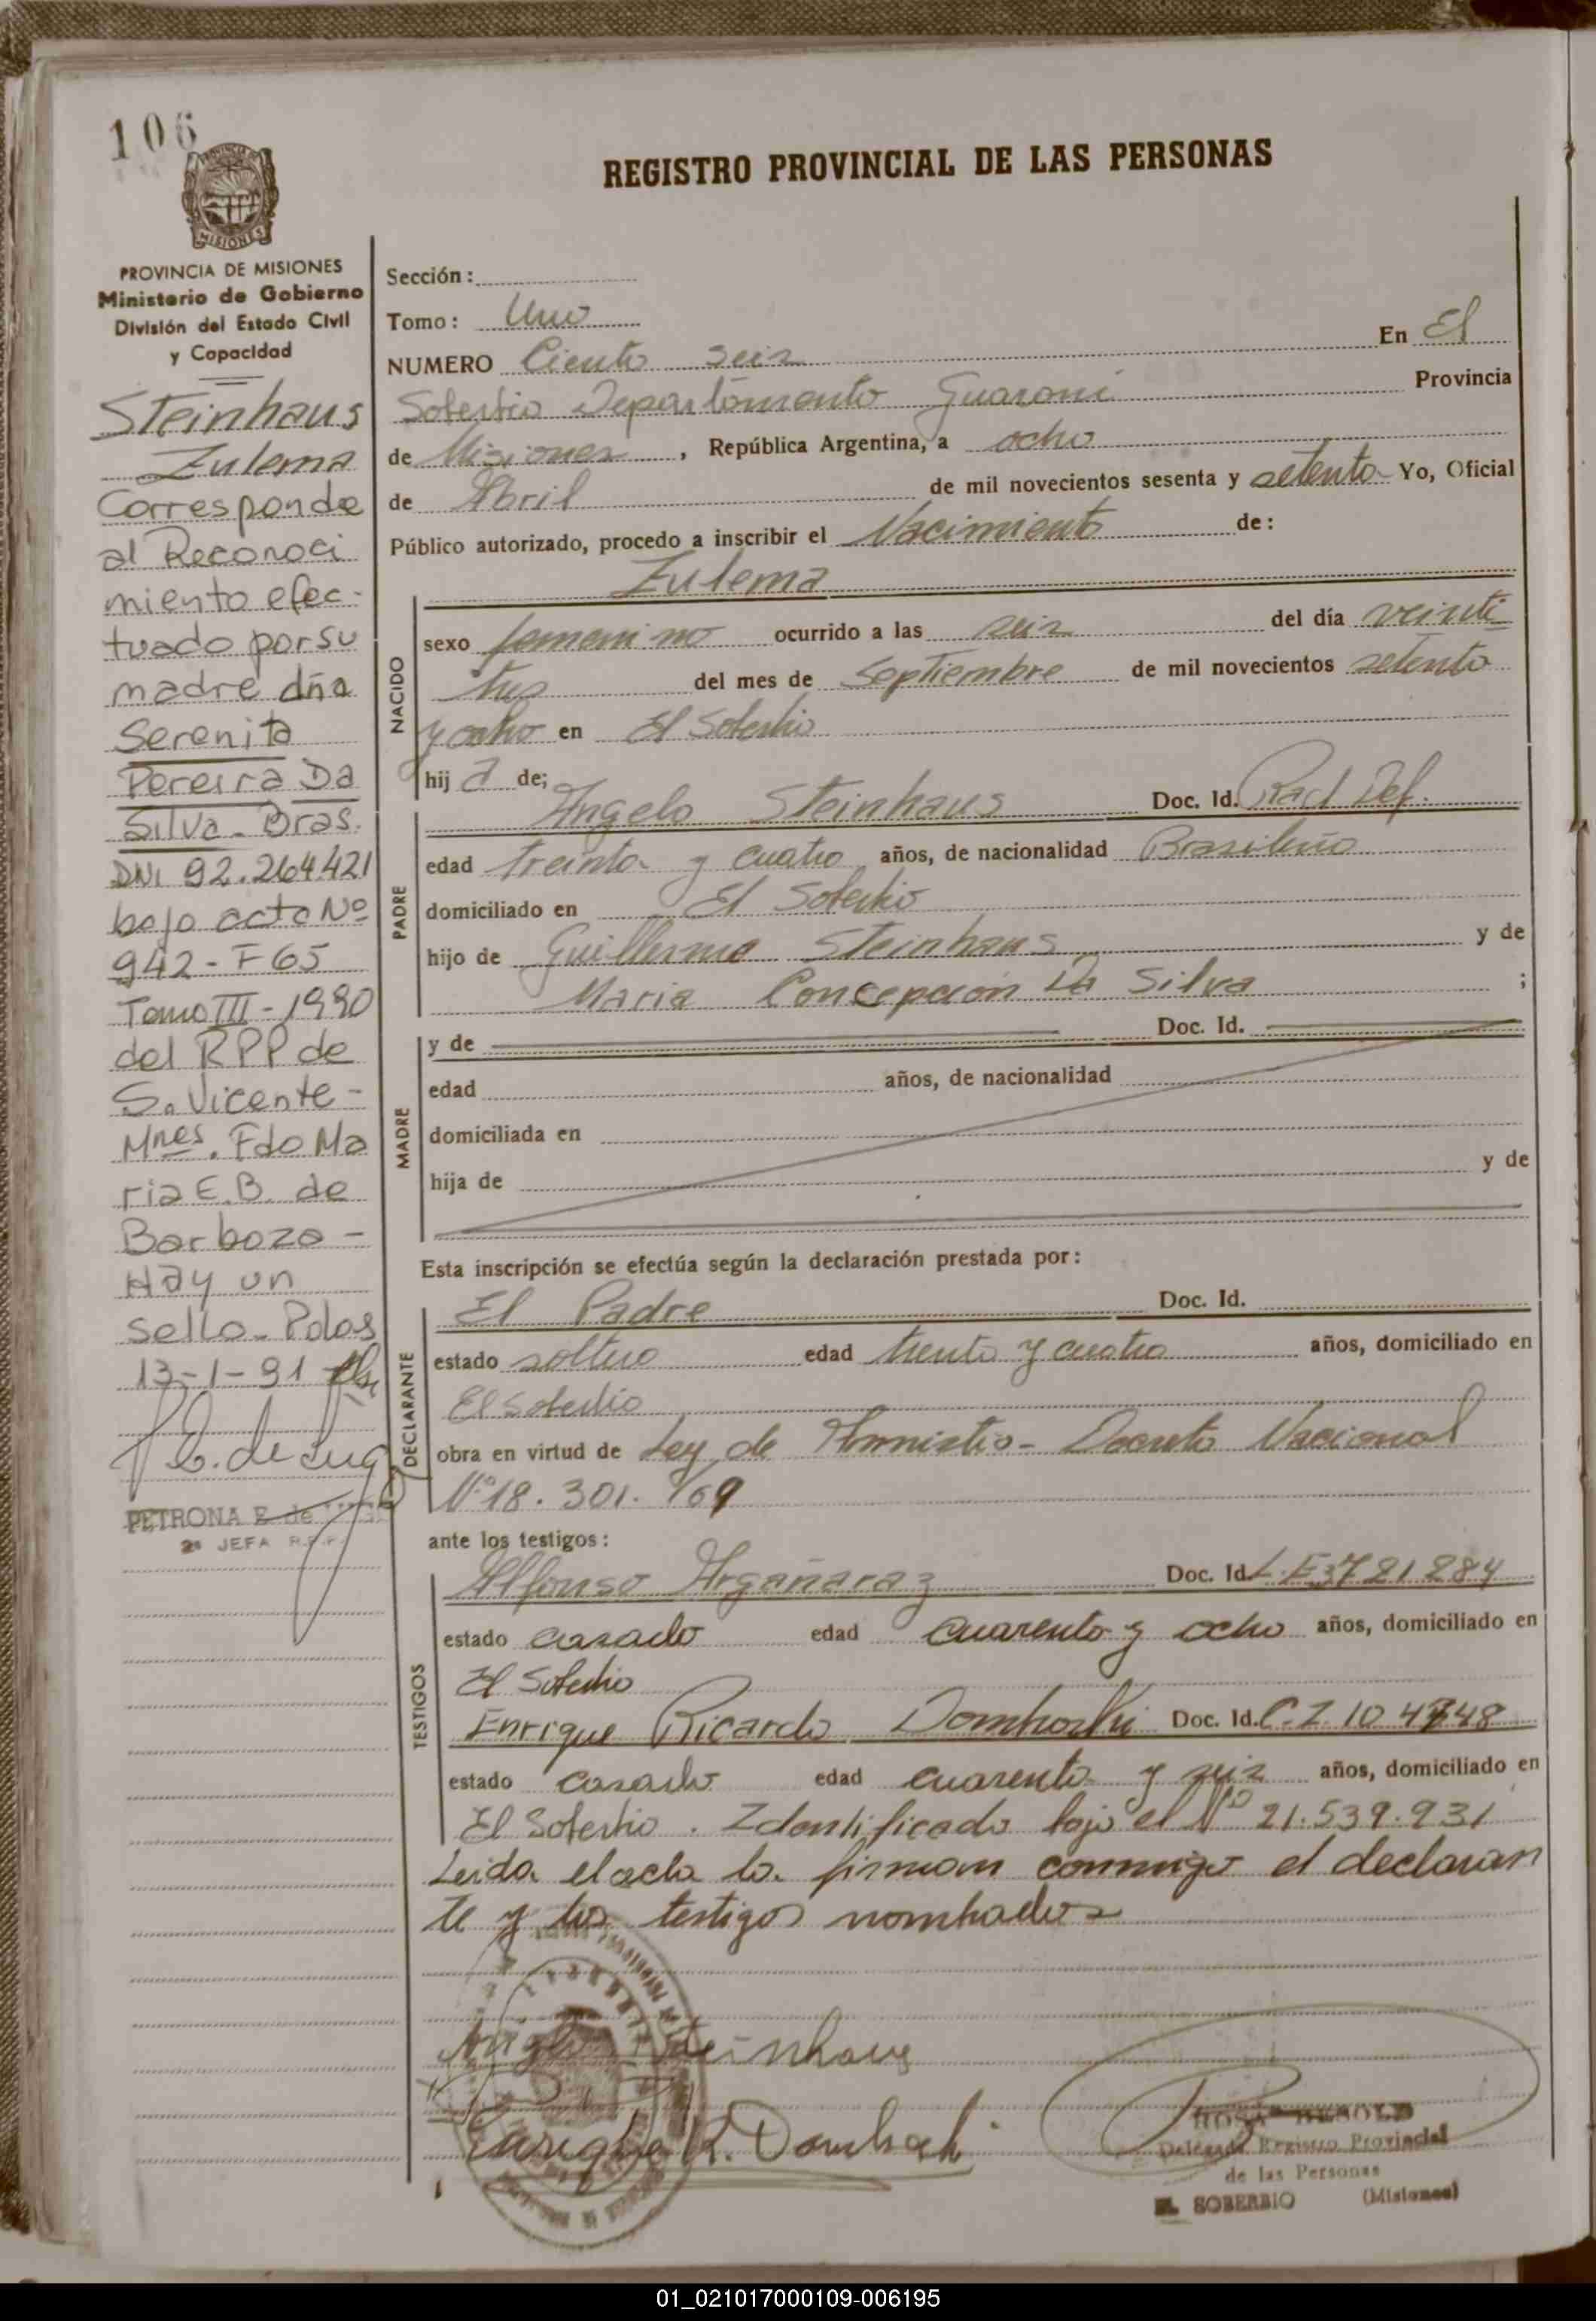 106
PROVINCIA DE MISIONES
Ministerio de Gobierno
División del Estado Civil
y Capacidad
Steinhaus
Zulema
Corresponde
al Reconoci
miento efec-
tuado por su
madre dña
Serenita
Pereira Da
Silva - Bras.
DNI 92.264.421
bajo acta Nº
942 - F 65
Tomo III - 1990
del RPP de
S. Vicente -
Mnes. Fdo Ma
ria E.B. de
Barboza -
Hay un
sello - Pdas
13-1-91
PETRONA E de
2ª JEFA R.P.P.
REGISTRO PROVINCIAL DE LAS PERSONAS
Sección:
Tomo: Uno
NUMERO Ciento seis En El
Soberbio Departamento Guaraní Provincia
de Misiones, República Argentina, a ocho
de Abril de mil novecientos sesenta y setenta Yo, Oficial
Público autorizado, procedo a inscribir el Nacimiento de:
Zulema
NACIDO
sexo femenino ocurrido a las seis del día veinti
tres del mes de Septiembre de mil novecientos setenta
y ocho en El Soberbio
hij a de;
PADRE
Angelo Steinhaus Doc. Id. Rad Def.
edad treinta y cuatro años, de nacionalidad Brasileño
domiciliado en El Soberbio
hijo de Guillermo Steinhaus y de
Maria Concepción Da Silva ;
MADRE
y de Doc. Id.
edad años, de nacionalidad
domiciliada en
hija de y de
Esta inscripción se efectúa según la declaración prestada por:
DECLARANTE
El Padre Doc. Id.
estado soltero edad treinta y cuatro años, domiciliado en
El Soberbio
obra en virtud de Ley de Amnistia - Decreto Nacional
Nº 18.301. /69
ante los testigos:
TESTIGOS
Alfonso Argañaraz Doc. Id. L.E 3721284
estado casado edad cuarenta y ocho años, domiciliado en
El Soberbio
Enrique Ricardo Doc. Id. C.I
estado casado edad cuarenta y seis años, domiciliado en
El Soberbio. Identificado bajo el Nº 21.539.931
Leida el acta la firman conmigo el declaran
te y los testigos nombrados
Angelo Steinhaus
Enrique R. Dombach
Delegada Registro Provincial
de las Personas
EL SOBERBIO (Misiones)
01_021017000109-006195